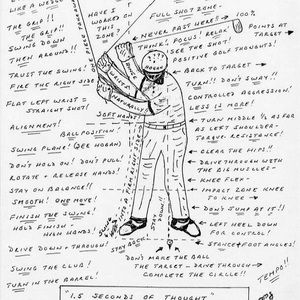 LIKE A WEDGE
THE GRIP!!
THE GRIP!!
SWING DOWN
THEN AROUND!!
TRUST THE SWING!
FIRE THE RIGHT SIDE
FLAT LEFT WRIST =
STRAIGHT SHOT!
ALIGNMENT!
BALL POSITION!
SWING PLANE! (BEN HOGAN)
DON'T HOLD ON! DON'T PULL!
ROTATE + RELEASE HANDS!
STAY ON BALANCE!
SMOOTH! ONE MOVE!
FINISH THE SWING!
HOLD FINISH -
HIGH HANDS!
DRIVE DOWN + THROUGH!
SWING THE CLUB!
TURN IN THE BARREL!
HAVE I
WORKED ON
THIS ZONE?
SOFT HANDS!
FULL SHOT ZONE-
NEVER PAST HERE!!
100%
THINK! FOCUS! RELAX!
SEE THE SHOT!
POSITIVE GOLF THOUGHTS!
POINTS AT
TARGET
BACK TO TARGET
TURN!! DON'T SWAY!!
CONTROLLED AGGRESSION!
LESS IS MORE!
TURN MIDDLE 1/3 AS FAR
AS LEFT SHOULDER-
TORQUE RESISTANCE!
CLEAR THE HIPS!!
DRIVE THROUGH WITH
THE BIG MUSCLES-
KNEE FLEX-
IMPACT ZONE KNEE
TO KNEE
DON'T JUMP AT IT!!
LEFT HEEL DOWN
FOR CONTROL!
STANCE + FOOT ANGLES!
STAY BACK!
STAY DOWN!!
DON'T MAKE THE BALL
THE TARGET - DRIVE THROUGH
COMPLETE THE CIRCLE!!
TEMPO!!
"1.5 SECONDS OF THOUGHT"